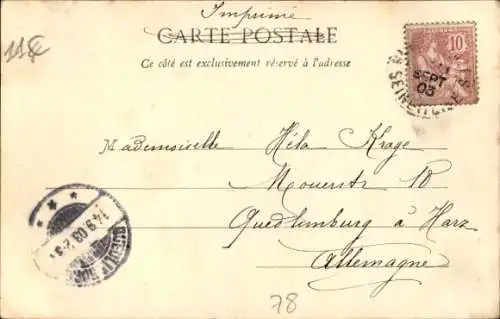 Imprimé
118
CARTE POSTALE
Ce côté est exclusivement réservé à l'adresse
10
SEPT
03
SEINE
Mademoiselle Héla Krage
Mauerstr 10
Quedlimburg à Harz
Allemagne
14.9.03
78